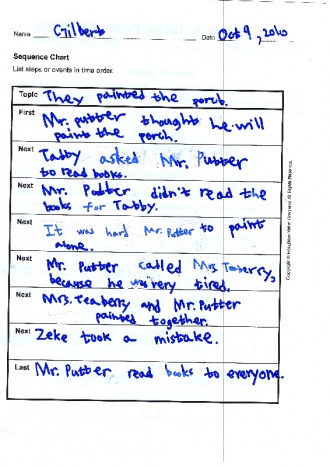 Name Gilbert Date Oct 9, 2010
Sequence Chart
List steps or events in time order.
Topic They painted the porch.
First Mr. putter thought he will
paint the porch.
Next Tabby asked Mr. Putter
to read books.
Next Mr. Putter didn't read the
books for Tabby.
Next It was hard Mr. Putter to paint
alone.
Next Mr. Putter called Mrs. Teaberry,
because he was very tired.
Next Mrs. Teaberry and Mr. Putter
painted together.
Next Zeke took a mistake.
Last Mr. Putter read books to everyone.
Copyright © Houghton Mifflin Company. All Rights Reserved.